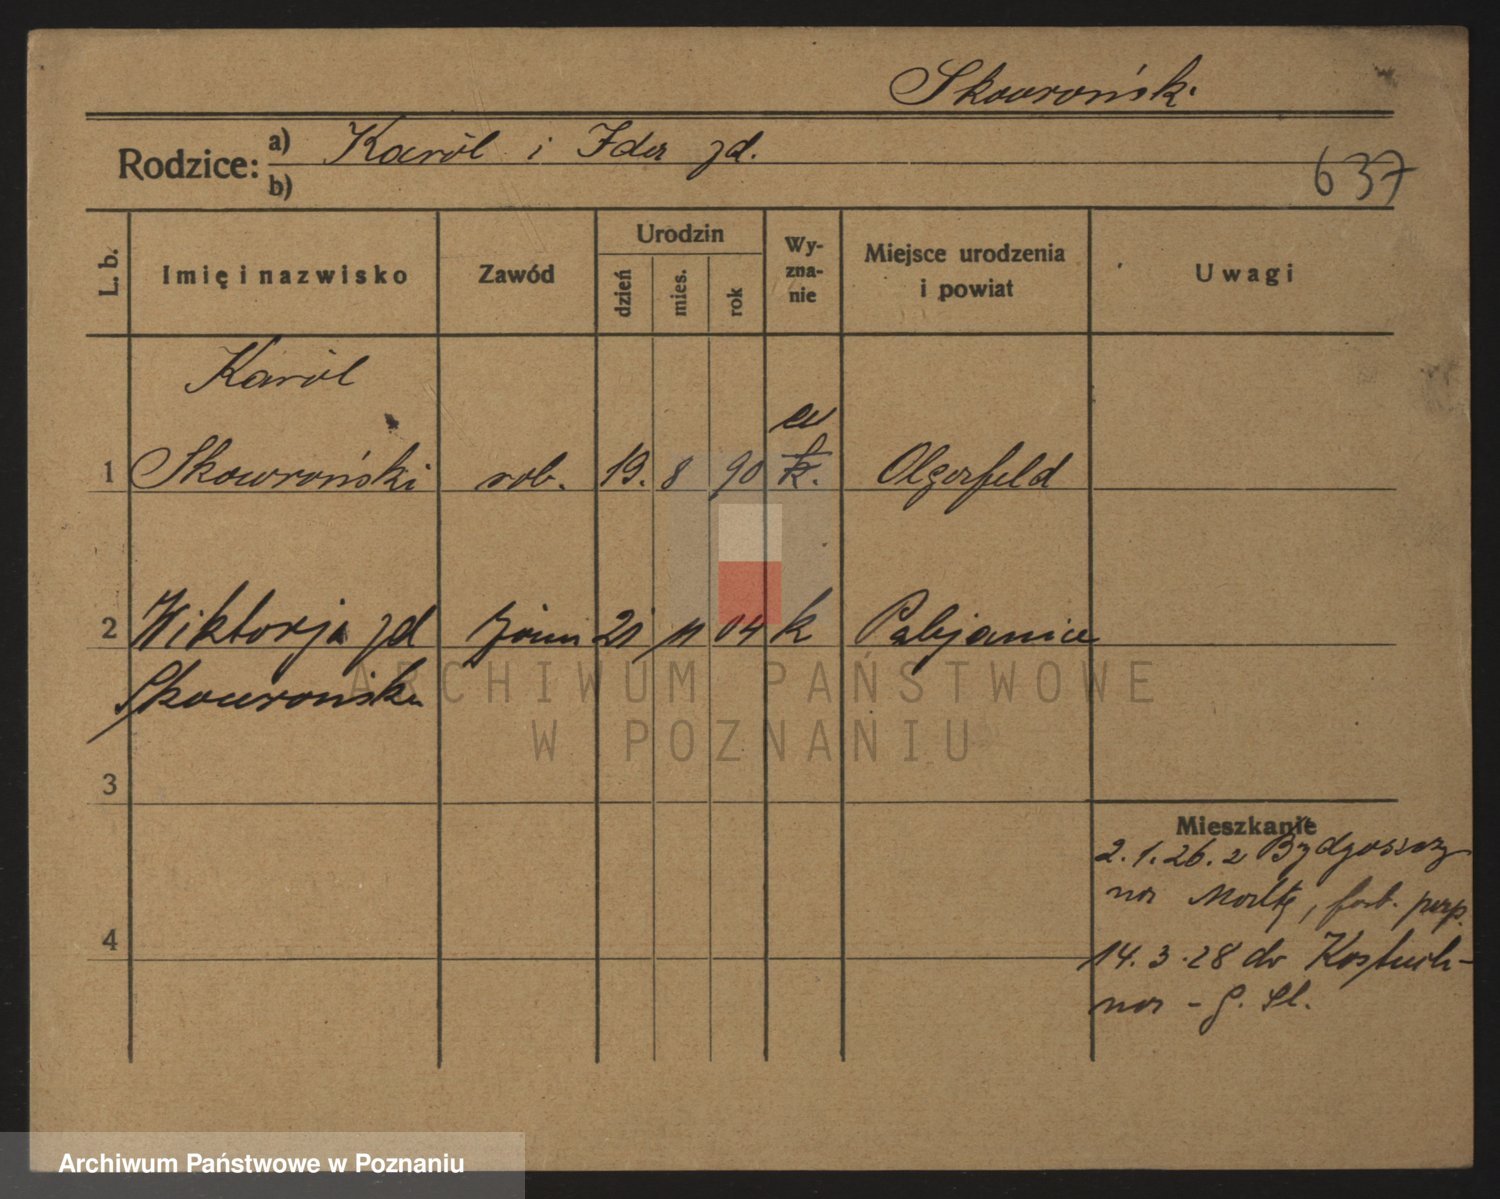 Skowroński
Rodzice: a) Karol i Ida zd.
b)
637
L. b.
Imię i nazwisko
Zawód
Urodzin
dzień
mies.
rok
Wy-
zna-
nie
Miejsce urodzenia
i powiat
Uwagi
Karol
ew
1 Skowroński rob. 19. 8 90 k. Olgerfeld
2 Wiktorja zd 21 11 04 k Pabjanice
Skowrońska
ARCHIWUM PAŃSTWOWE
W POZNANIU
3
Mieszkanie
2.1.26. z Bydgoszcz
4
14.3.28 do Kostuch-
na - G. Śl.
Archiwum Państwowe w Poznaniu